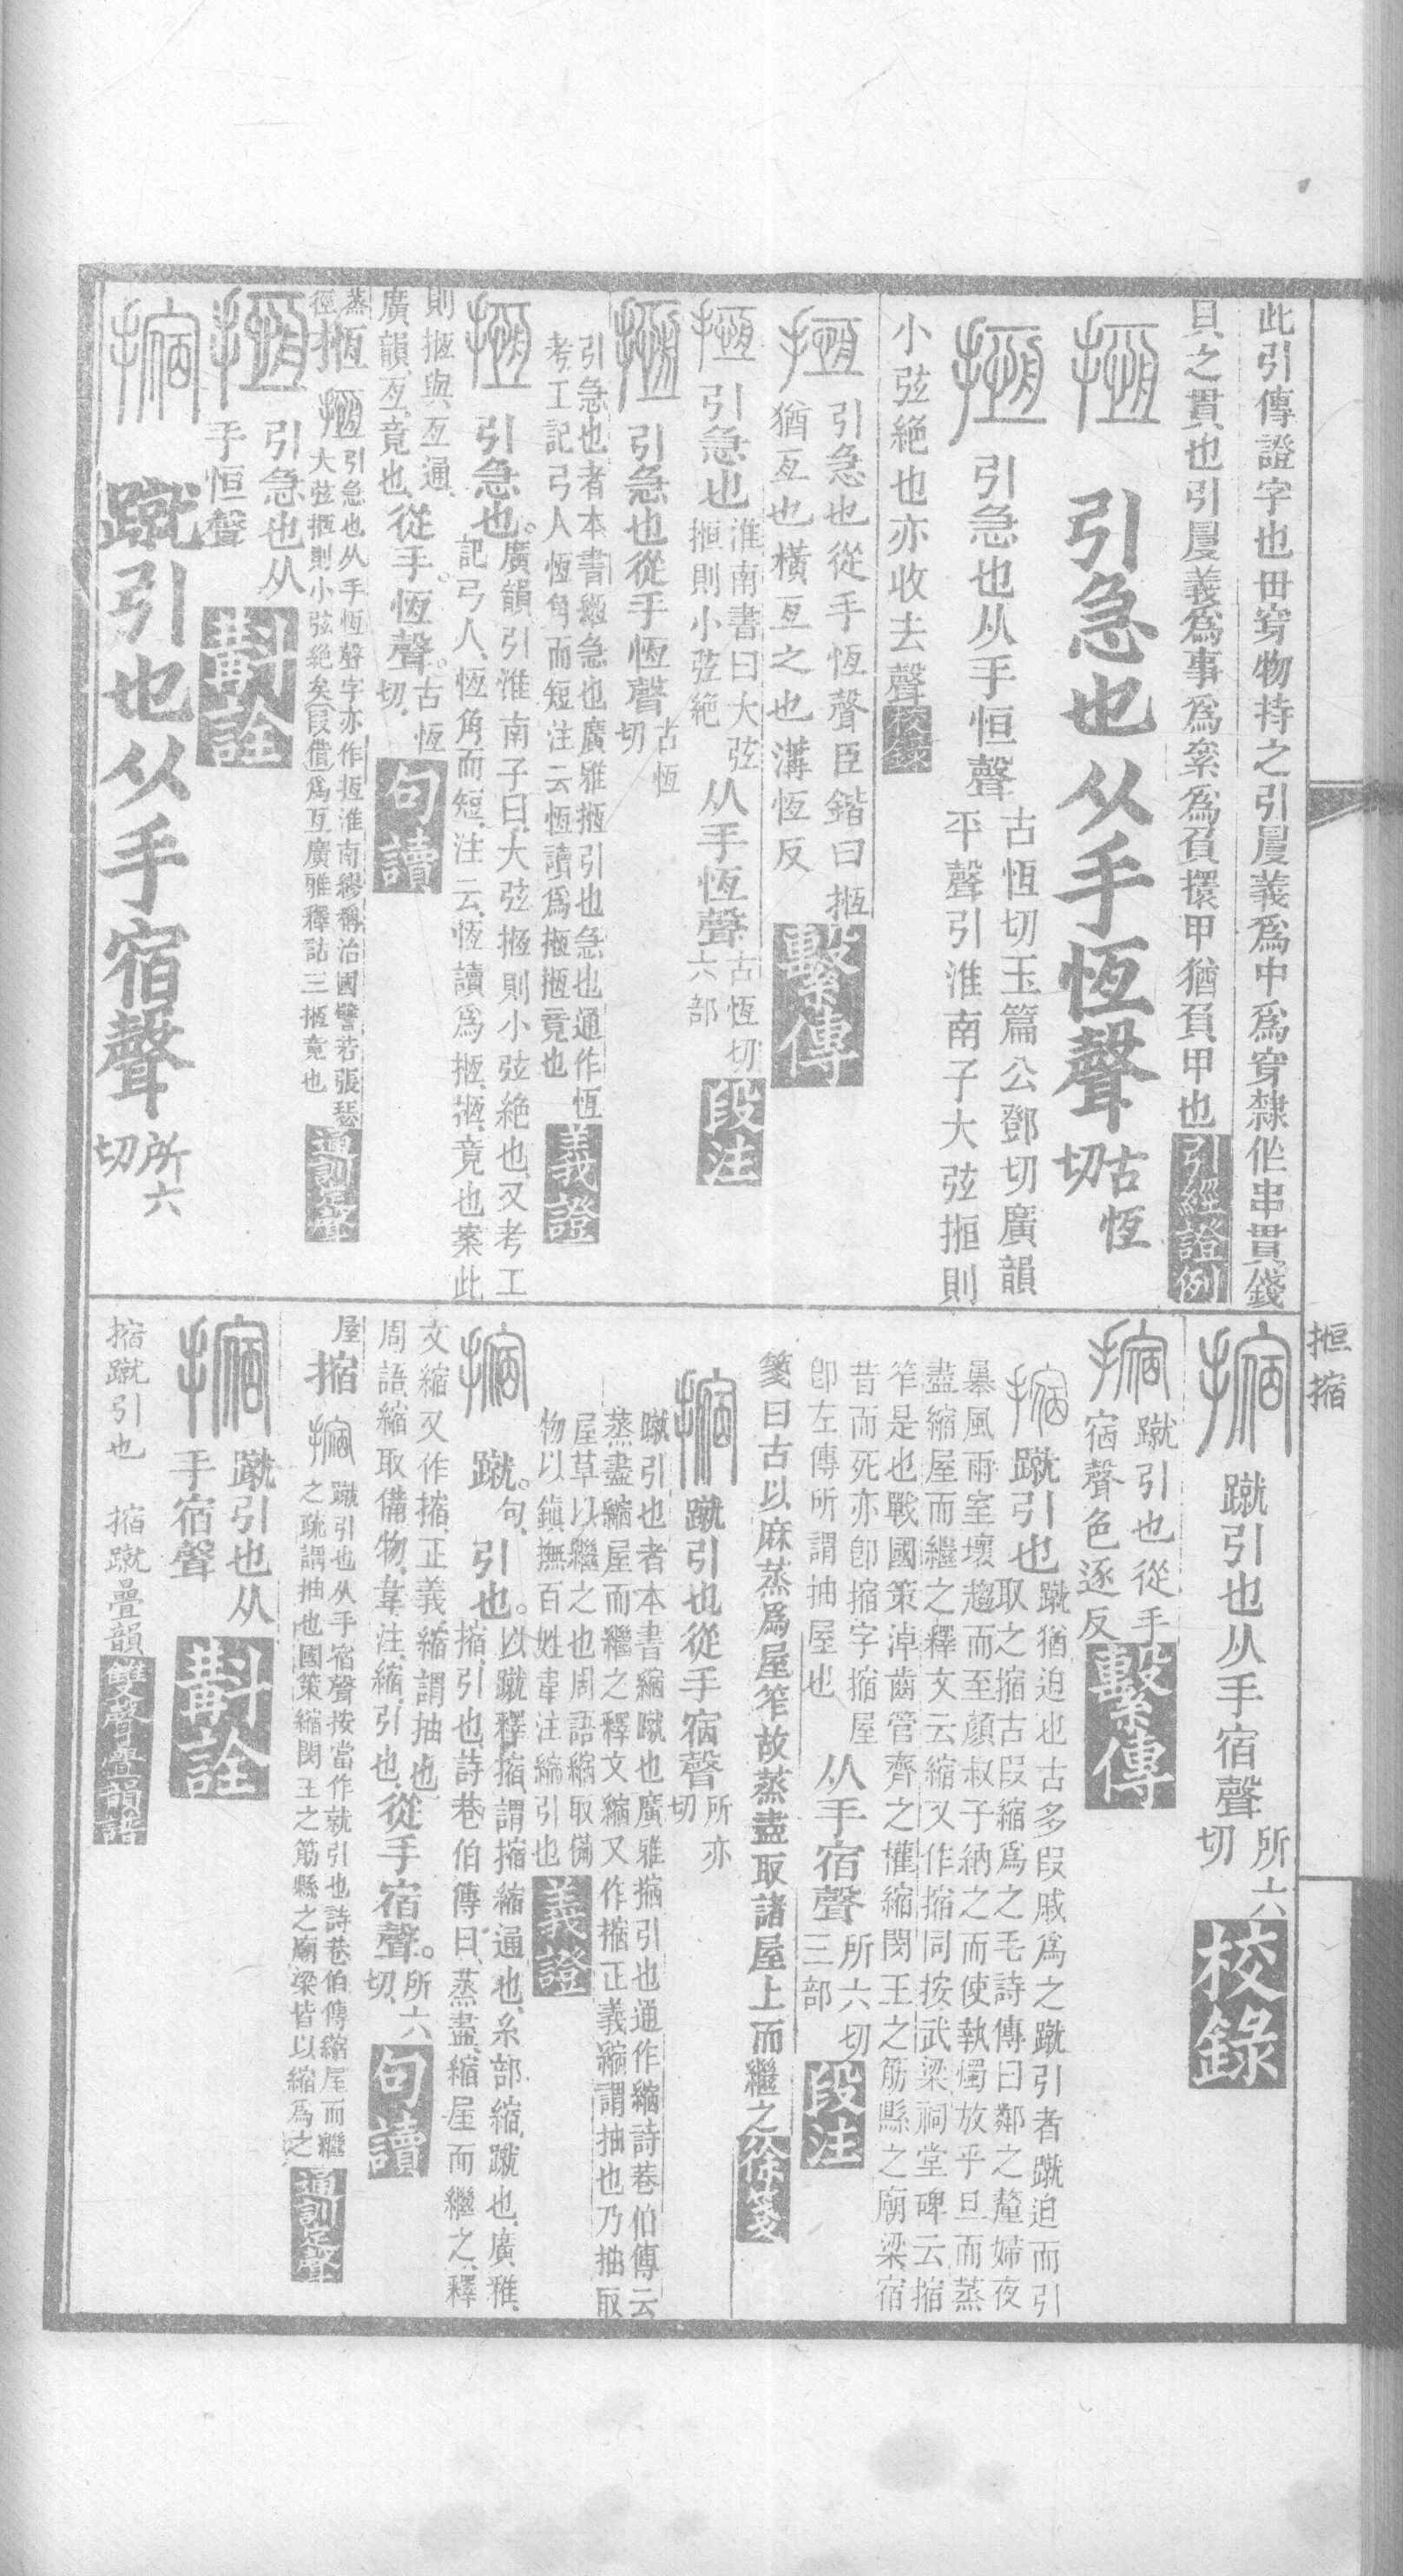 此引傳證字也毌穿物持之引𢌿義爲中爲穿隸作串貫錢
貝之貫也引𢌿義爲事爲絫爲負擐甲猶負甲也引經證例
揯 引急也从手恆聲古恆切
揯 引急也从手恒聲古恆切玉篇公鄧切廣韻
平聲引淮南子大弦揯則
小弦絕也亦收去聲校錄
揯 引急也從手恆聲臣鍇曰揯
猶亙也橫亙之也溝恆反繫傳
揯 引急也淮南書曰大弦
揯則小弦絕从手恆聲古恆切
六部段注
揯 引急也從手恆聲古恆
切
引急也者本書緪急也廣雅揯引也急也通作恆
考工記弓人恆角而短注云恆讀爲揯揯竟也義證
揯 引急也。廣韻引淮南子曰、大弦揯則小弦絕也、又考工
記弓人、恆角而短、注云、恆讀爲揯、揯、竟也、案此
則揯與亙通、
廣韻、亙、竟也、從手。恆聲。古恆
切、句讀
蒸
徑
揯 揯引急也从手恆聲字亦作搄淮南繆稱治國譬若張瑟
大弦揯則小弦絕矣〔叚借〕爲亙廣雅釋詁三揯竟也通訓定聲
揯 引急也从
手恒聲斠詮
摍 蹴引也从手宿聲所六
切
揯摍
摍 蹴引也从手宿聲所六
切校錄
摍 蹴引也從手
宿聲色逐反繫傳
摍 蹴引也蹴猶迫也古多叚戚爲之蹴引者蹴迫而引
取之摍古叚縮爲之毛詩傳曰鄰之釐婦夜
暴風雨室壞趨而至顏叔子納之而使執燭放乎旦而蒸
盡縮屋而繼之釋文云縮又作摍同按武梁祠堂碑云摍
笮是也戰國策淖齒管齊之權縮閔王之筋縣之廟梁宿
昔而死亦卽摍字摍屋
卽左傳所謂抽屋也从手宿聲所六切
三部段注
箋曰古以麻蒸爲屋笮故蒸盡取諸屋上而繼之徐箋
摍 蹴引也從手宿聲所亦
切
蹴引也者本書縮蹴也廣雅摍引也通作縮詩巷伯傳云
蒸盡縮屋而繼之釋文縮又作摍正義縮謂抽也乃抽取
屋草以繼之也周語縮取備
物以鎮撫百姓韋注縮引也義證
摍 蹴。句、引也。以蹴釋摍、謂摍縮通也、糸部縮、蹴也、廣雅、
摍、引也、詩巷伯傳曰、蒸盡、縮屋而繼之、釋
文縮又作摍、正義、縮謂抽也、
周語、縮取備物、韋注、縮、引也、從手宿聲。所六
切、句讀
屋
摍 蹴引也从手宿聲按當作就引也詩巷伯傳縮屋而繼
之疏謂抽也國策縮閔王之筋縣之廟梁皆以縮爲之通訓定聲
摍 蹴引也从
手宿聲斠詮
摍蹴引也 摍蹴疊韻雙聲疊韻譜